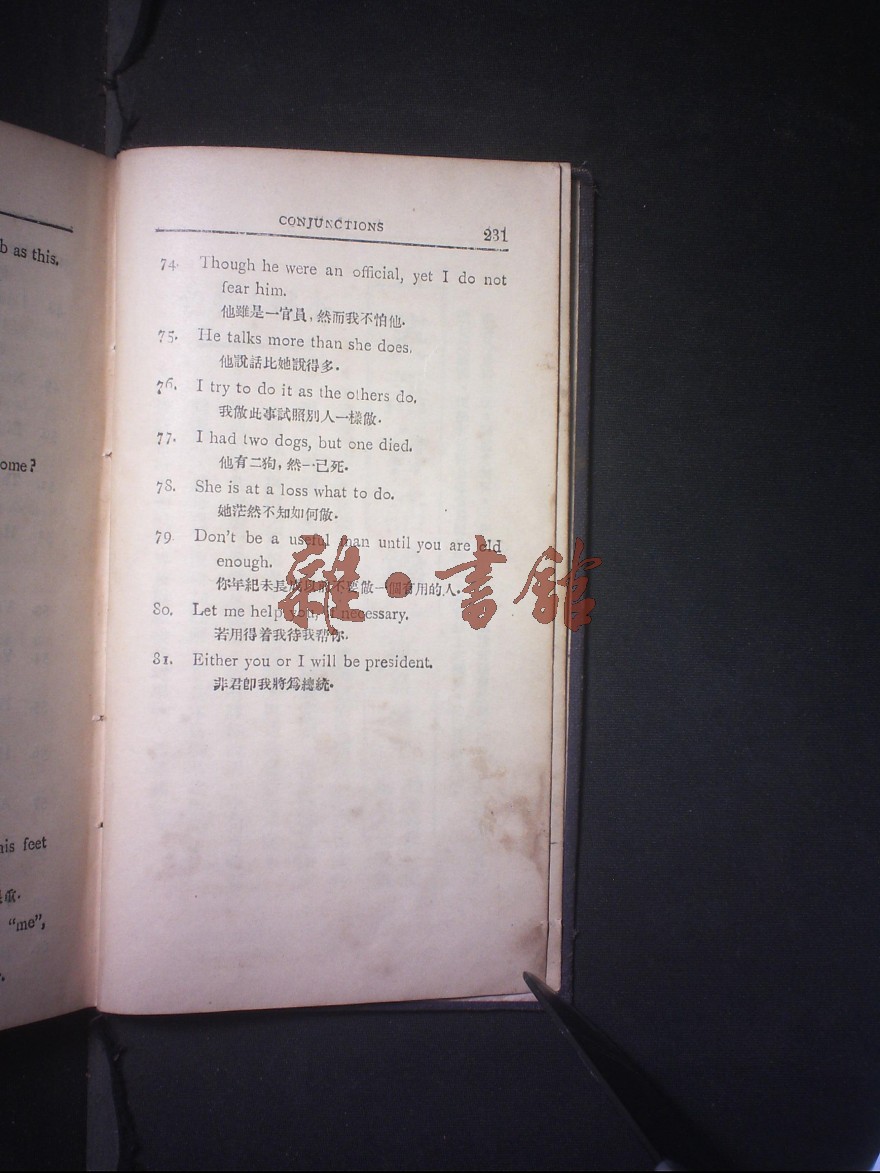 b as this.
ome?
his feet
“me”,
CONJUNCTIONS
231
74. Though he were an official, yet I do not
fear him.
他雖是一官員，然而我不怕他.
75. He talks more than she does.
他說話比她說得多.
76. I try to do it as the others do.
我做此事試照別人一樣做.
77. I had two dogs, but one died.
他有二狗，然一已死.
78. She is at a loss what to do.
她茫然不知如何做.
79 Don't be a useful man until you are old
enough.
你年紀未長成以前不要做一個有用的人.
80. Let me help you, if necessary.
若用得着我待我帮你.
81. Either you or I will be president.
非君卽我將爲總統.
雜·書館